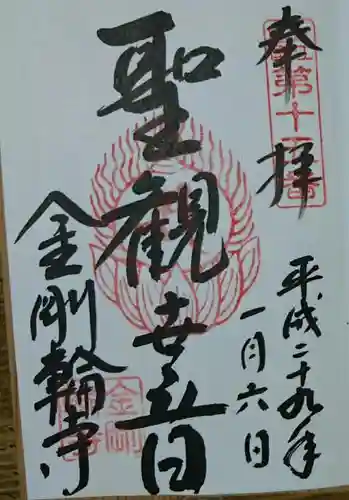 奉拝
第十一番
平成二十九年
一月六日
聖観世音
金剛輪寺
金剛